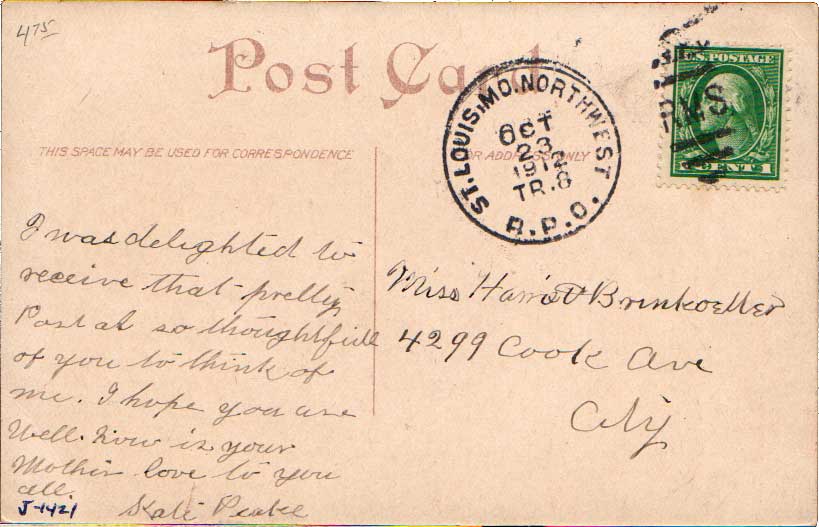 475
Post Card
THIS SPACE MAY BE USED FOR CORRESPONDENCE
FOR ADDRESS ONLY
ST. LOUIS, MO. NORTHWEST
OCT
23
1912
TR. 8
R.P.O.
U.S. POSTAGE
RMS
1 CENT 1
I was delighted to
receive that pretty
Postal so thoughtfull
of you to think of
me. I hope you are
Well. how is your
Mother love to you
all.
Kate
J-1421
Miss Harriet Brinkoetter
4299 Cook Ave
City